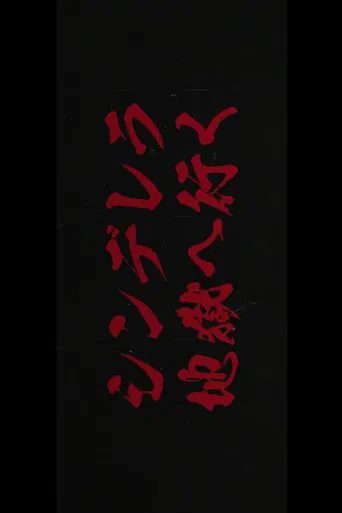 シンデレラ
地獄へ行く